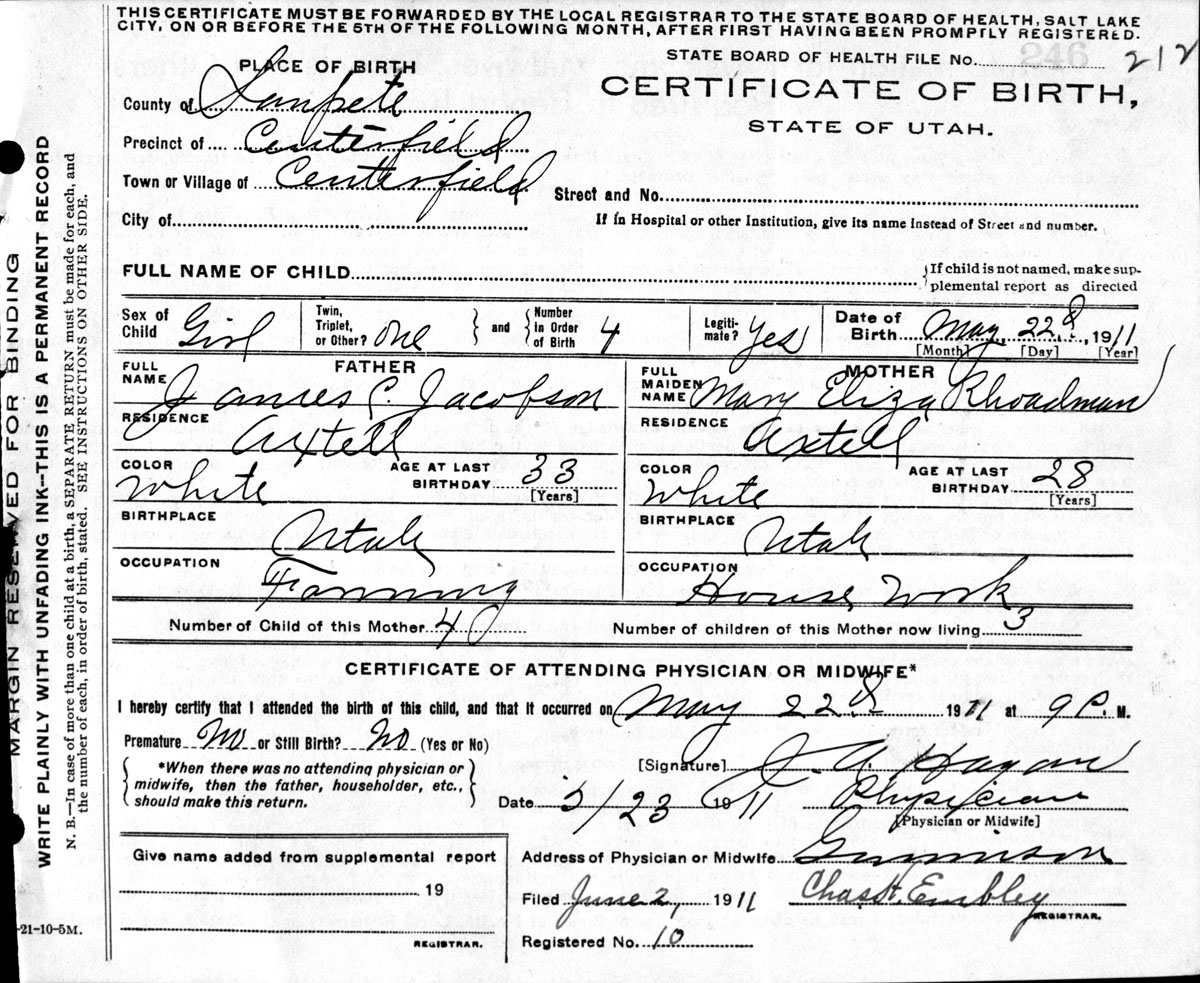 THIS CERTIFICATE MUST BE FORWARDED BY THE LOCAL REGISTRAR TO THE STATE BOARD OF HEALTH, SALT LAKE
CITY, ON OR BEFORE THE 5TH OF THE FOLLOWING MONTH, AFTER FIRST HAVING BEEN PROMPTLY REGISTERED.
STATE BOARD OF HEALTH FILE No. 212
246
PLACE OF BIRTH
CERTIFICATE OF BIRTH,
STATE OF UTAH.
County of Sanpete
Precinct of Centerfield
Town or Village of Centerfield
Street and No.
City of
If in Hospital or other Institution, give its name instead of Street and number.
FULL NAME OF CHILD
{If child is not named, make sup-
plemental report as directed
Sex of Child Girl
Twin, Triplet, or Other? One } and { Number in Order of Birth 4
Legiti-mate? Yes
Date of Birth May 22d, 1911
[Month] [Day] [Year]
FATHER
FULL NAME James C. Jacobson
RESIDENCE Axtell
COLOR White AGE AT LAST BIRTHDAY 33
[Years]
BIRTHPLACE Utah
OCCUPATION Farming
MOTHER
FULL MAIDEN NAME Mary Eliza Rhoadman
RESIDENCE Axtell
COLOR White AGE AT LAST BIRTHDAY 28
[Years]
BIRTHPLACE Utah
OCCUPATION House Work
Number of Child of this Mother 4
Number of children of this Mother now living 3
CERTIFICATE OF ATTENDING PHYSICIAN OR MIDWIFE*
I hereby certify that I attended the birth of this child, and that it occurred on May 22d 1911 at 9 P. M.
Premature No or Still Birth? No (Yes or No)
{ *When there was no attending physician or
midwife, then the father, householder, etc.,
should make this return. }
[Signature] J. A. Hagan
Date 5/23 1911 Physician
[Physician or Midwife]
Give name added from supplemental report
19
REGISTRAR.
Address of Physician or Midwife Gunnison
Filed June 2, 1911 Chas H. Embley
REGISTRAR.
Registered No. 10
-21-10-5M.
MARGIN RESERVED FOR BINDING
WRITE PLAINLY WITH UNFADING INK-THIS IS A PERMANENT RECORD
N. B.-In case of more than one child at a birth, a SEPARATE RETURN must be made for each, and
the number of each, in order of birth, stated. SEE INSTRUCTIONS ON OTHER SIDE.